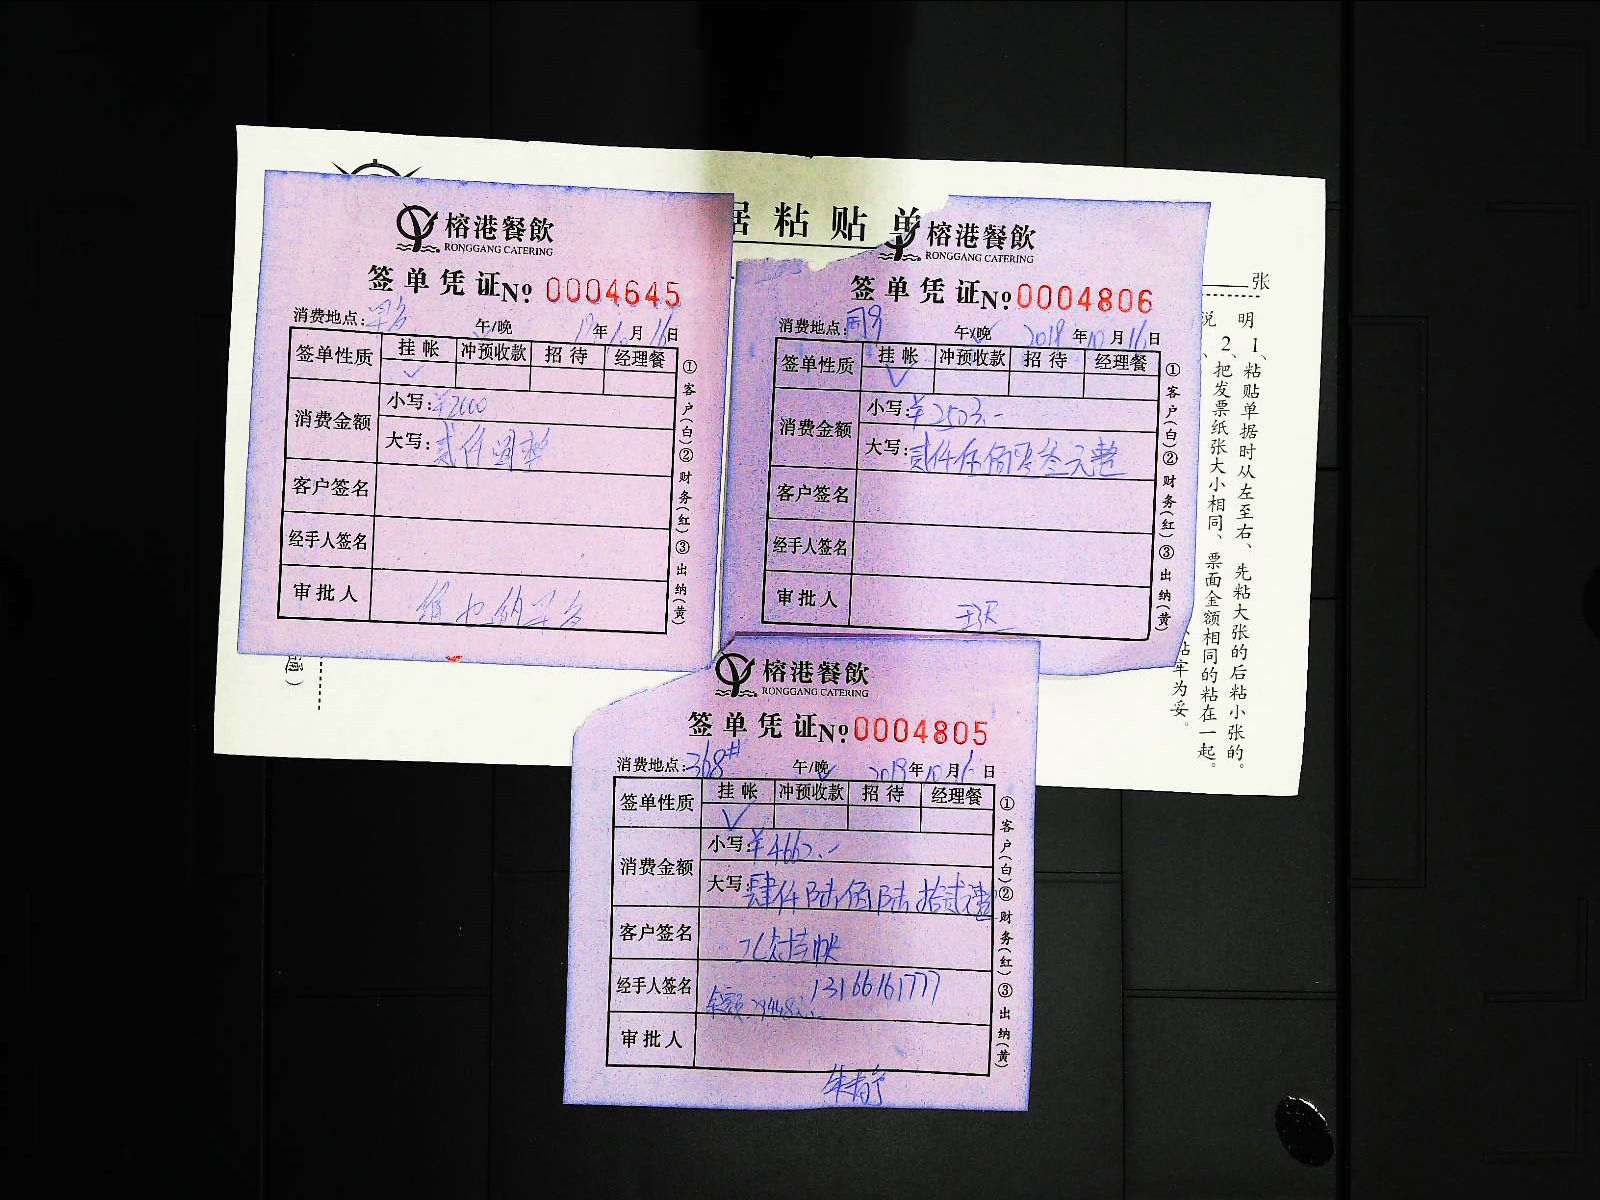 粘 贴 单
榕港餐飲
RONGGANG CATERING
签单凭证 No: 0004645
消费地点: 午/晚 年 月 16日
签单性质 挂帐 冲预收款 招待 经理餐
✓
消费金额 小写: ¥2000
大写: 贰仟圆整
客户签名
经手人签名
审批人
①客户(白)②财务(红)③出纳(黄)
榕港餐飲
RONGGANG CATERING
签单凭证 No: 0004806
消费地点: 午/晚 2019年10月16日
签单性质 挂帐 冲预收款 招待 经理餐
✓
消费金额 小写: ¥2503.-
大写: 贰仟伍佰零叁元整
客户签名
经手人签名
审批人
①客户(白)②财务(红)③出纳(黄)
张
说 明
1、粘贴单据时从左至右、先粘大张的后粘小张的。
2、把发票纸张大小相同、票面金额相同的粘在一起。
粘牢为妥。
榕港餐飲
RONGGANG CATERING
签单凭证 No: 0004805
消费地点: 368# 午/晚 2019年10月16日
签单性质 挂帐 冲预收款 招待 经理餐
✓
消费金额 小写: ¥4662.-
大写: 肆仟陆佰陆拾贰元整
客户签名 挂帐
经手人签名 13166161777
余额:
审批人
①客户(白)②财务(红)③出纳(黄)